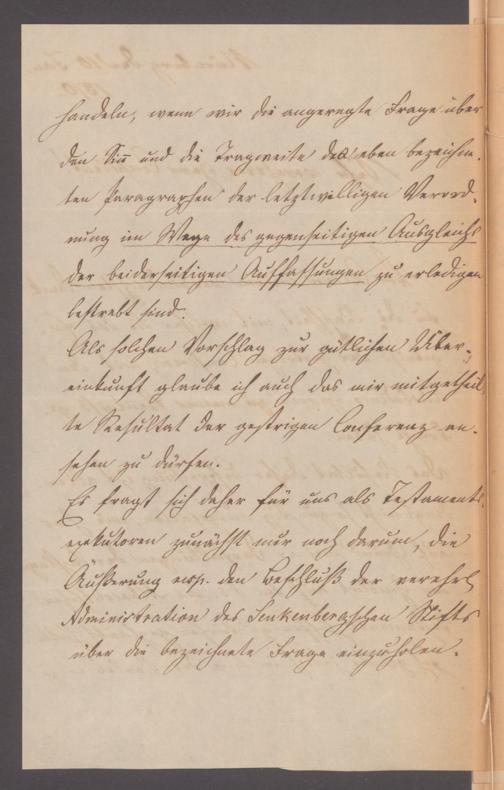 handeln, wenn wir die angeregte Frage über
den Sinn und die Tragweite des eben bezeichne-
ten Paragraphen der letztwilligen Verord-
nung im Wege des gegenseitigen Ausgleichs
der beiderseitigen Auffassungen zu erledigen
bestrebt sind.
Als solchen Vorschlag zur gütlichen Über-
einkunft glaube ich auch das mir mitgetheil-
te Resultat der gestrigen Conferenz an-
sehen zu dürfen.
Es fragt sich daher für uns als Testaments-
exekutoren zunächst nur noch darum, die
Äußerung resp. den Beschluß der verehrl
Administration des Senkenbergschen Stifts
über die bezeichnete Frage einzuholen.